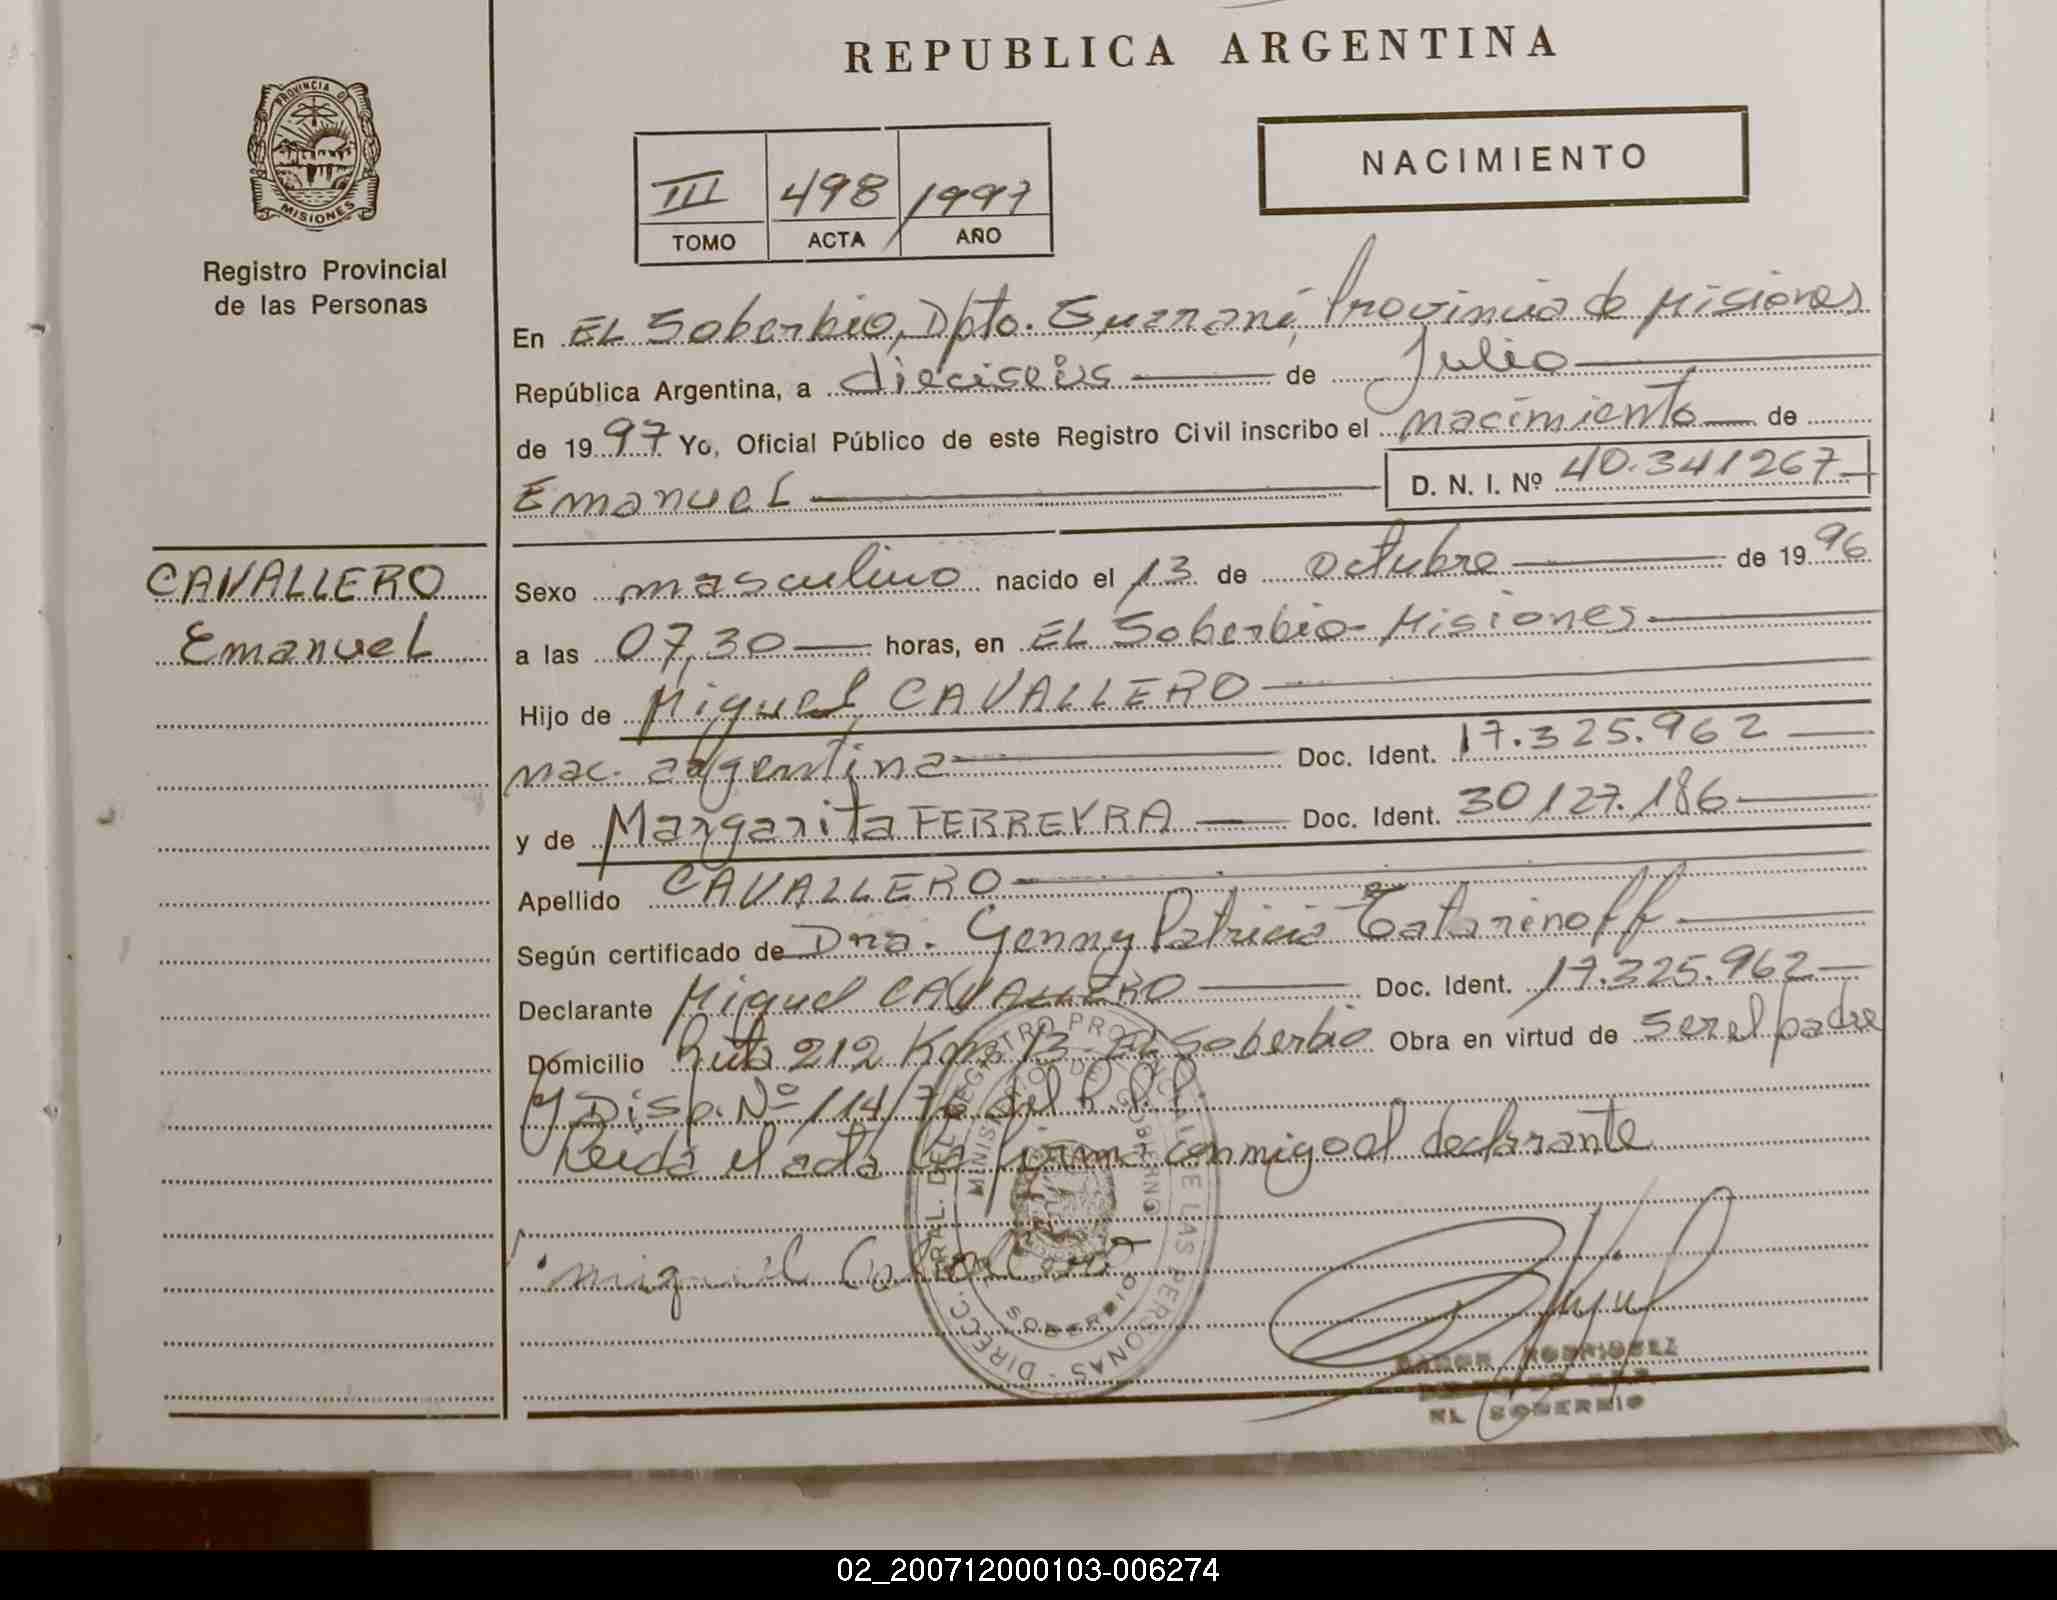 REPUBLICA ARGENTINA
PROVINCIA DE
MISIONES
Registro Provincial
de las Personas
III 498 1997
TOMO ACTA AÑO
NACIMIENTO
En EL Soberbio, Dpto. Guaraní, Provincia de Misiones
República Argentina, a dieciseis de Julio
de 1997 Yo, Oficial Público de este Registro Civil inscribo el nacimiento de
Emanuel D. N. I. Nº 40.341267
CAVALLERO
Emanuel
Sexo masculino nacido el 13 de octubre de 1996
a las 07,30 horas, en EL Soberbio - Misiones
Hijo de Miguel CAVALLERO
nac. argentina Doc. Ident. 17.325.962
y de Margarita FERREYRA Doc. Ident. 30.127.186
Apellido CAVALLERO
Según certificado de Dra. Genny Patricia Tatarinoff
Declarante Miguel CAVALLERO Doc. Ident. 17.325.962
Domicilio Ruta 212 Km 13 - EL Soberbio Obra en virtud de ser el padre
y Disp. Nº 114/76 del R.P.P.
Leida el acta la firma conmigo el declarante
miguel Cavallero
DIRECC. GRAL. DEL REGISTRO PROVINCIAL DE LAS PERSONAS
MINISTERIO DE GOBIERNO
SOBERBIO
RODRIGUEZ
EL SOBERBIO
02_200712000103-006274